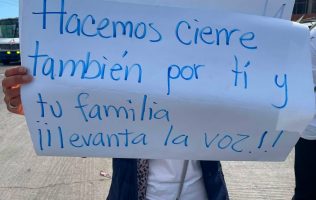 Hacemos cierre
también por tí y
tu familia
¡¡¡levanta la voz!!